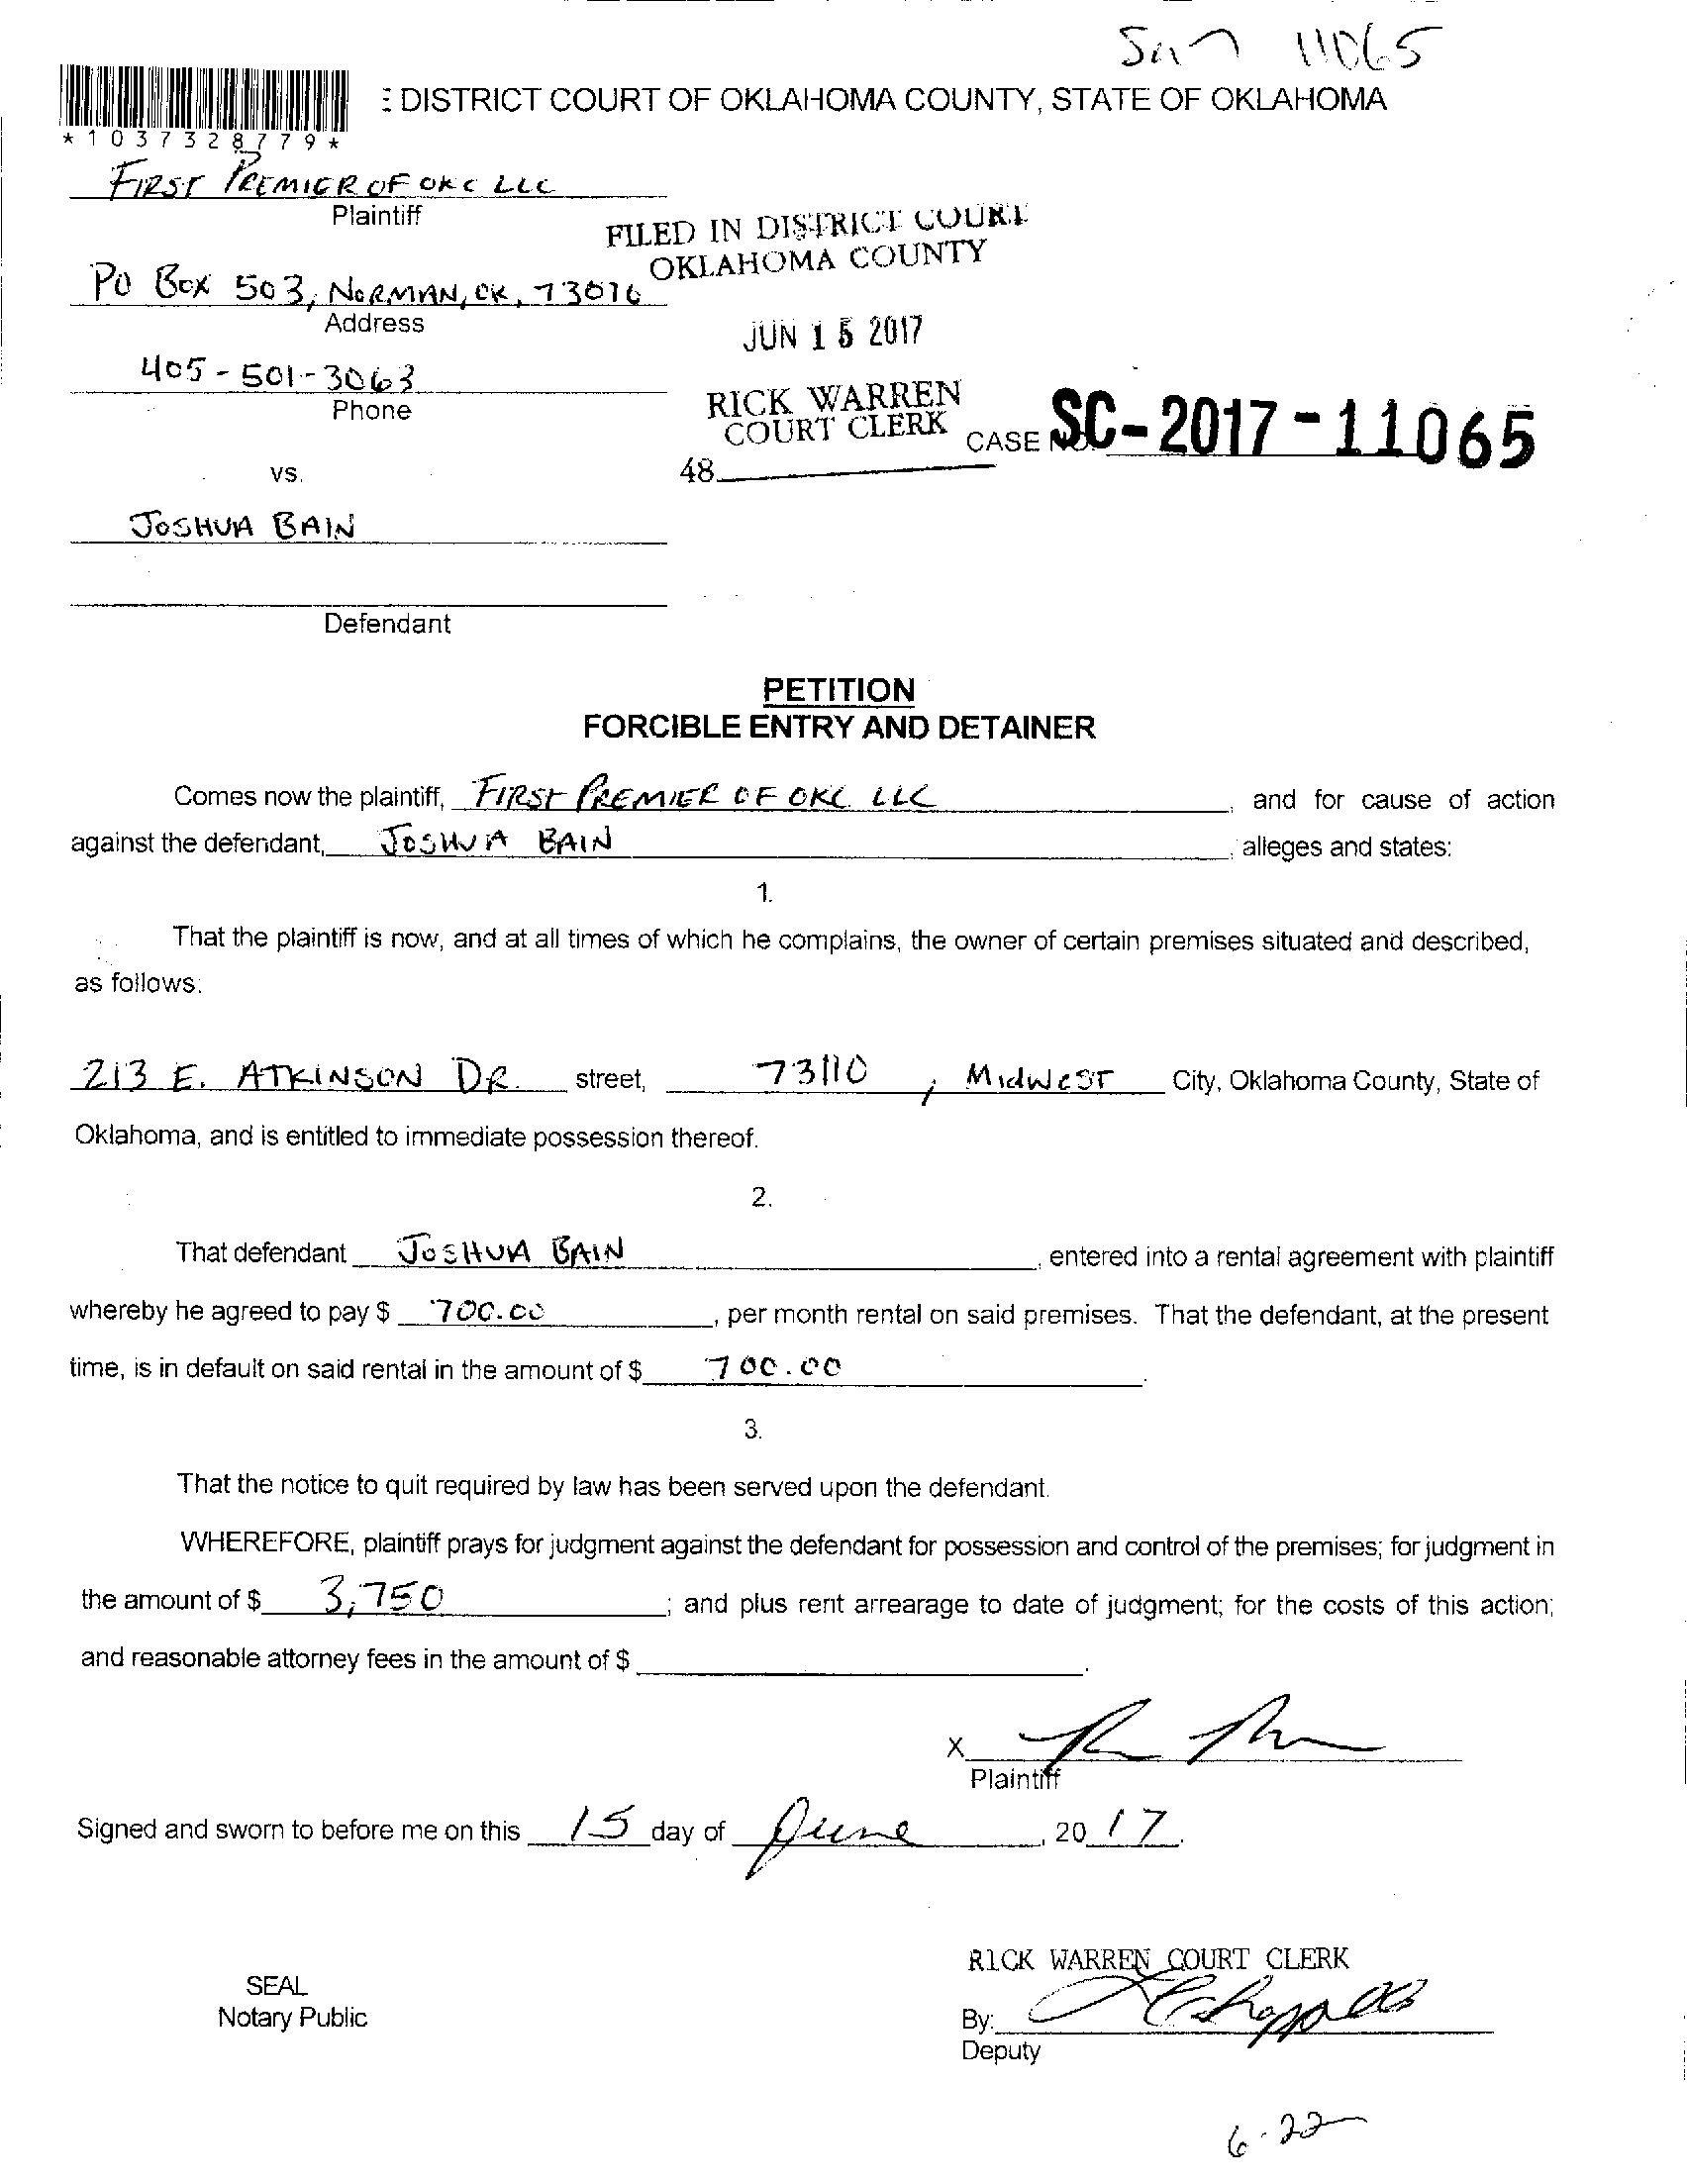 11065
DISTRICT COURT OF OKLAHOMA COUNTY, STATE OF OKLAHOMA
*1037328779*
FIRST PREMIER OF OKC LLC
Plaintiff
FILED IN DISTRICT COURT
OKLAHOMA COUNTY
PO BOX 503, NORMAN, OK, 73076
Address
JUN 15 2017
405-501-3063
Phone
RICK WARREN
COURT CLERK
CASE NO. SC-2017-11065
48
vs.
JOSHUA BAIN
Defendant
PETITION
FORCIBLE ENTRY AND DETAINER
Comes now the plaintiff, FIRST PREMIER OF OKC LLC, and for cause of action
against the defendant, JOSHUA BAIN; alleges and states:
1.
That the plaintiff is now, and at all times of which he complains, the owner of certain premises situated and described,
as follows:
213 E. ATKINSON DR. street, 73110, MIDWEST City, Oklahoma County, State of
Oklahoma, and is entitled to immediate possession thereof.
2.
That defendant JOSHUA BAIN, entered into a rental agreement with plaintiff
whereby he agreed to pay $ 700.00, per month rental on said premises. That the defendant, at the present
time, is in default on said rental in the amount of $ 700.00.
3.
That the notice to quit required by law has been served upon the defendant.
WHEREFORE, plaintiff prays for judgment against the defendant for possession and control of the premises; for judgment in
the amount of $ 3,750; and plus rent arrearage to date of judgment; for the costs of this action;
and reasonable attorney fees in the amount of $.
X
Plaintiff
Signed and sworn to before me on this 15 day of June, 2017.
RICK WARREN COURT CLERK
SEAL
Notary Public
By:
Deputy
6-22